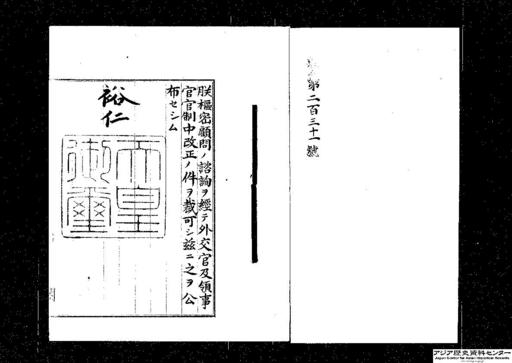 第二百三十一號
朕樞密顧問ノ諮詢ヲ經テ外交官及領事
官官制中改正ノ件ヲ裁可シ茲ニ之ヲ公
布セシム
裕仁
天皇
御璽
アジア歴史資料センター
Japan Center for Asian Historical Records